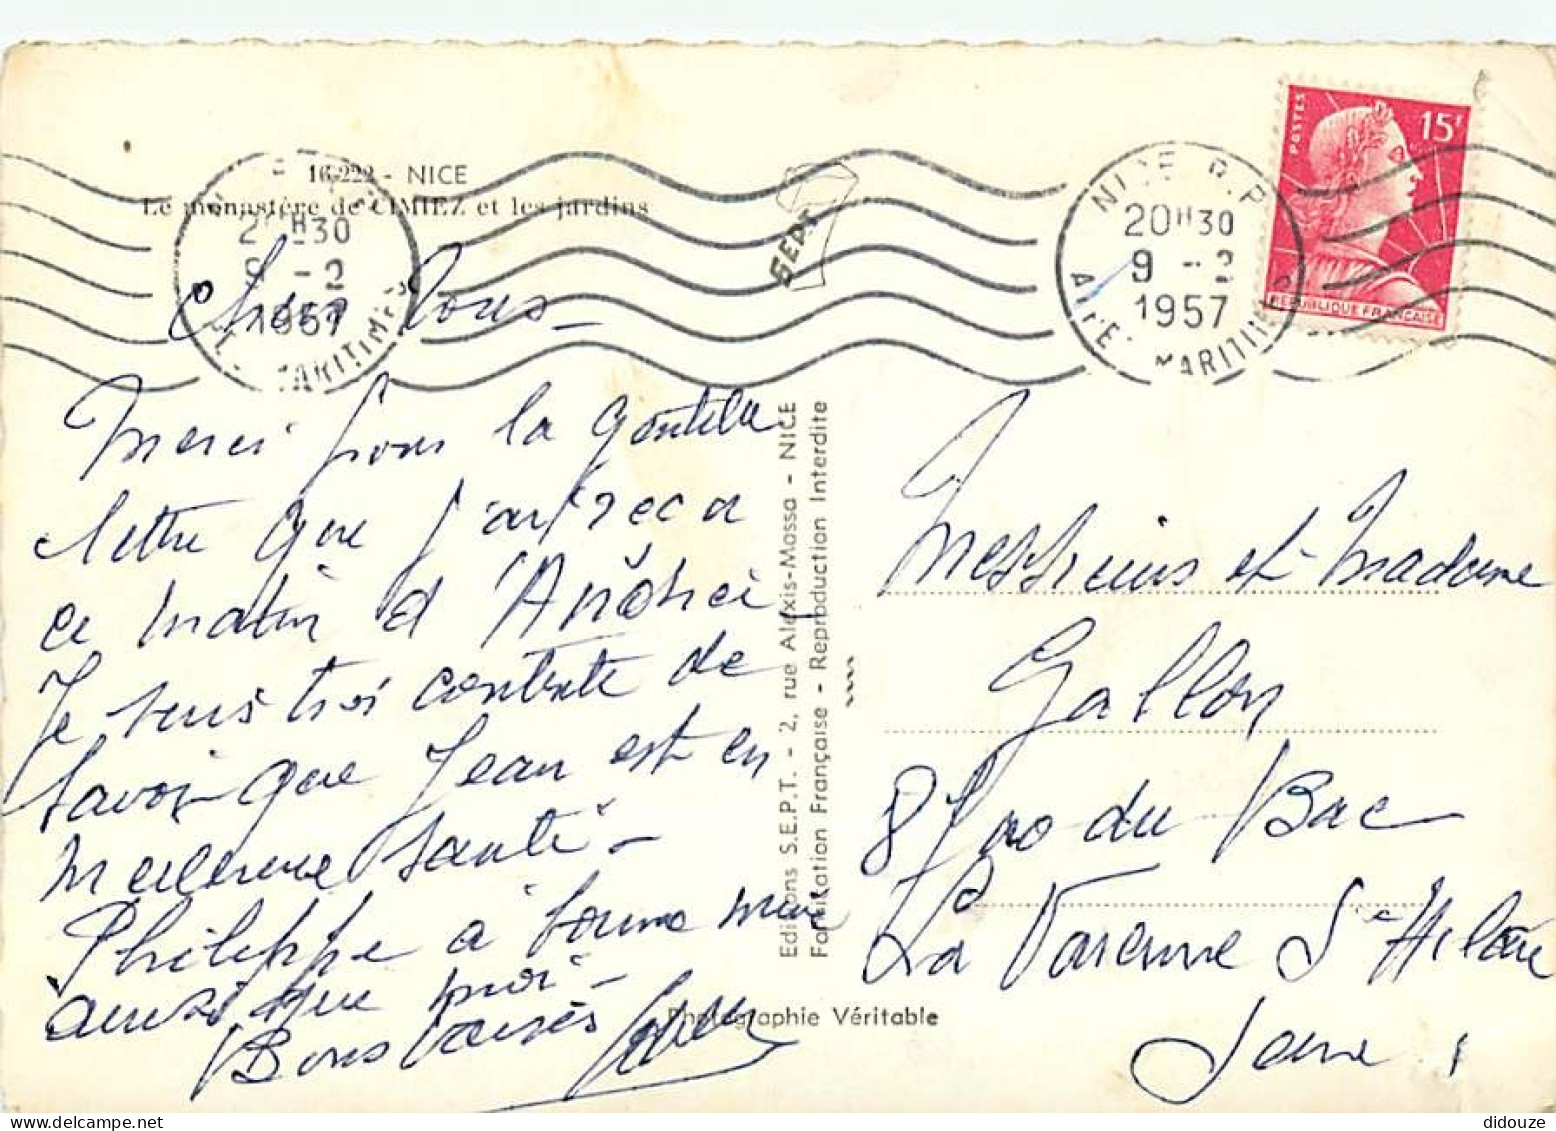 16-222 - NICE
Le monastère de CIMIEZ et les jardins
20H30
9 - 2
1957
MARITIMES
SEPT
NICE R.P.
20H30
9 - 2
1957
ALPES MARITIMES
POSTES
15F
REPUBLIQUE FRANÇAISE
Chers Vous _
Merci pour la gentille
lettre que j'ai reçu
ce matin d'André _
Je suis très contente de
savoir que Jean est en
meilleure santé _
Philippe a bonne mine
ainsi que moi _
Bons baisers
Editions S.E.P.T. - 2, rue Alexis-Mossa - NICE
Fabrication Française - Reproduction Interdite
Photographie Véritable
Messieurs et Madame
Gallon
8 du Bac
La Varenne St Hilaire
Seine
didouze